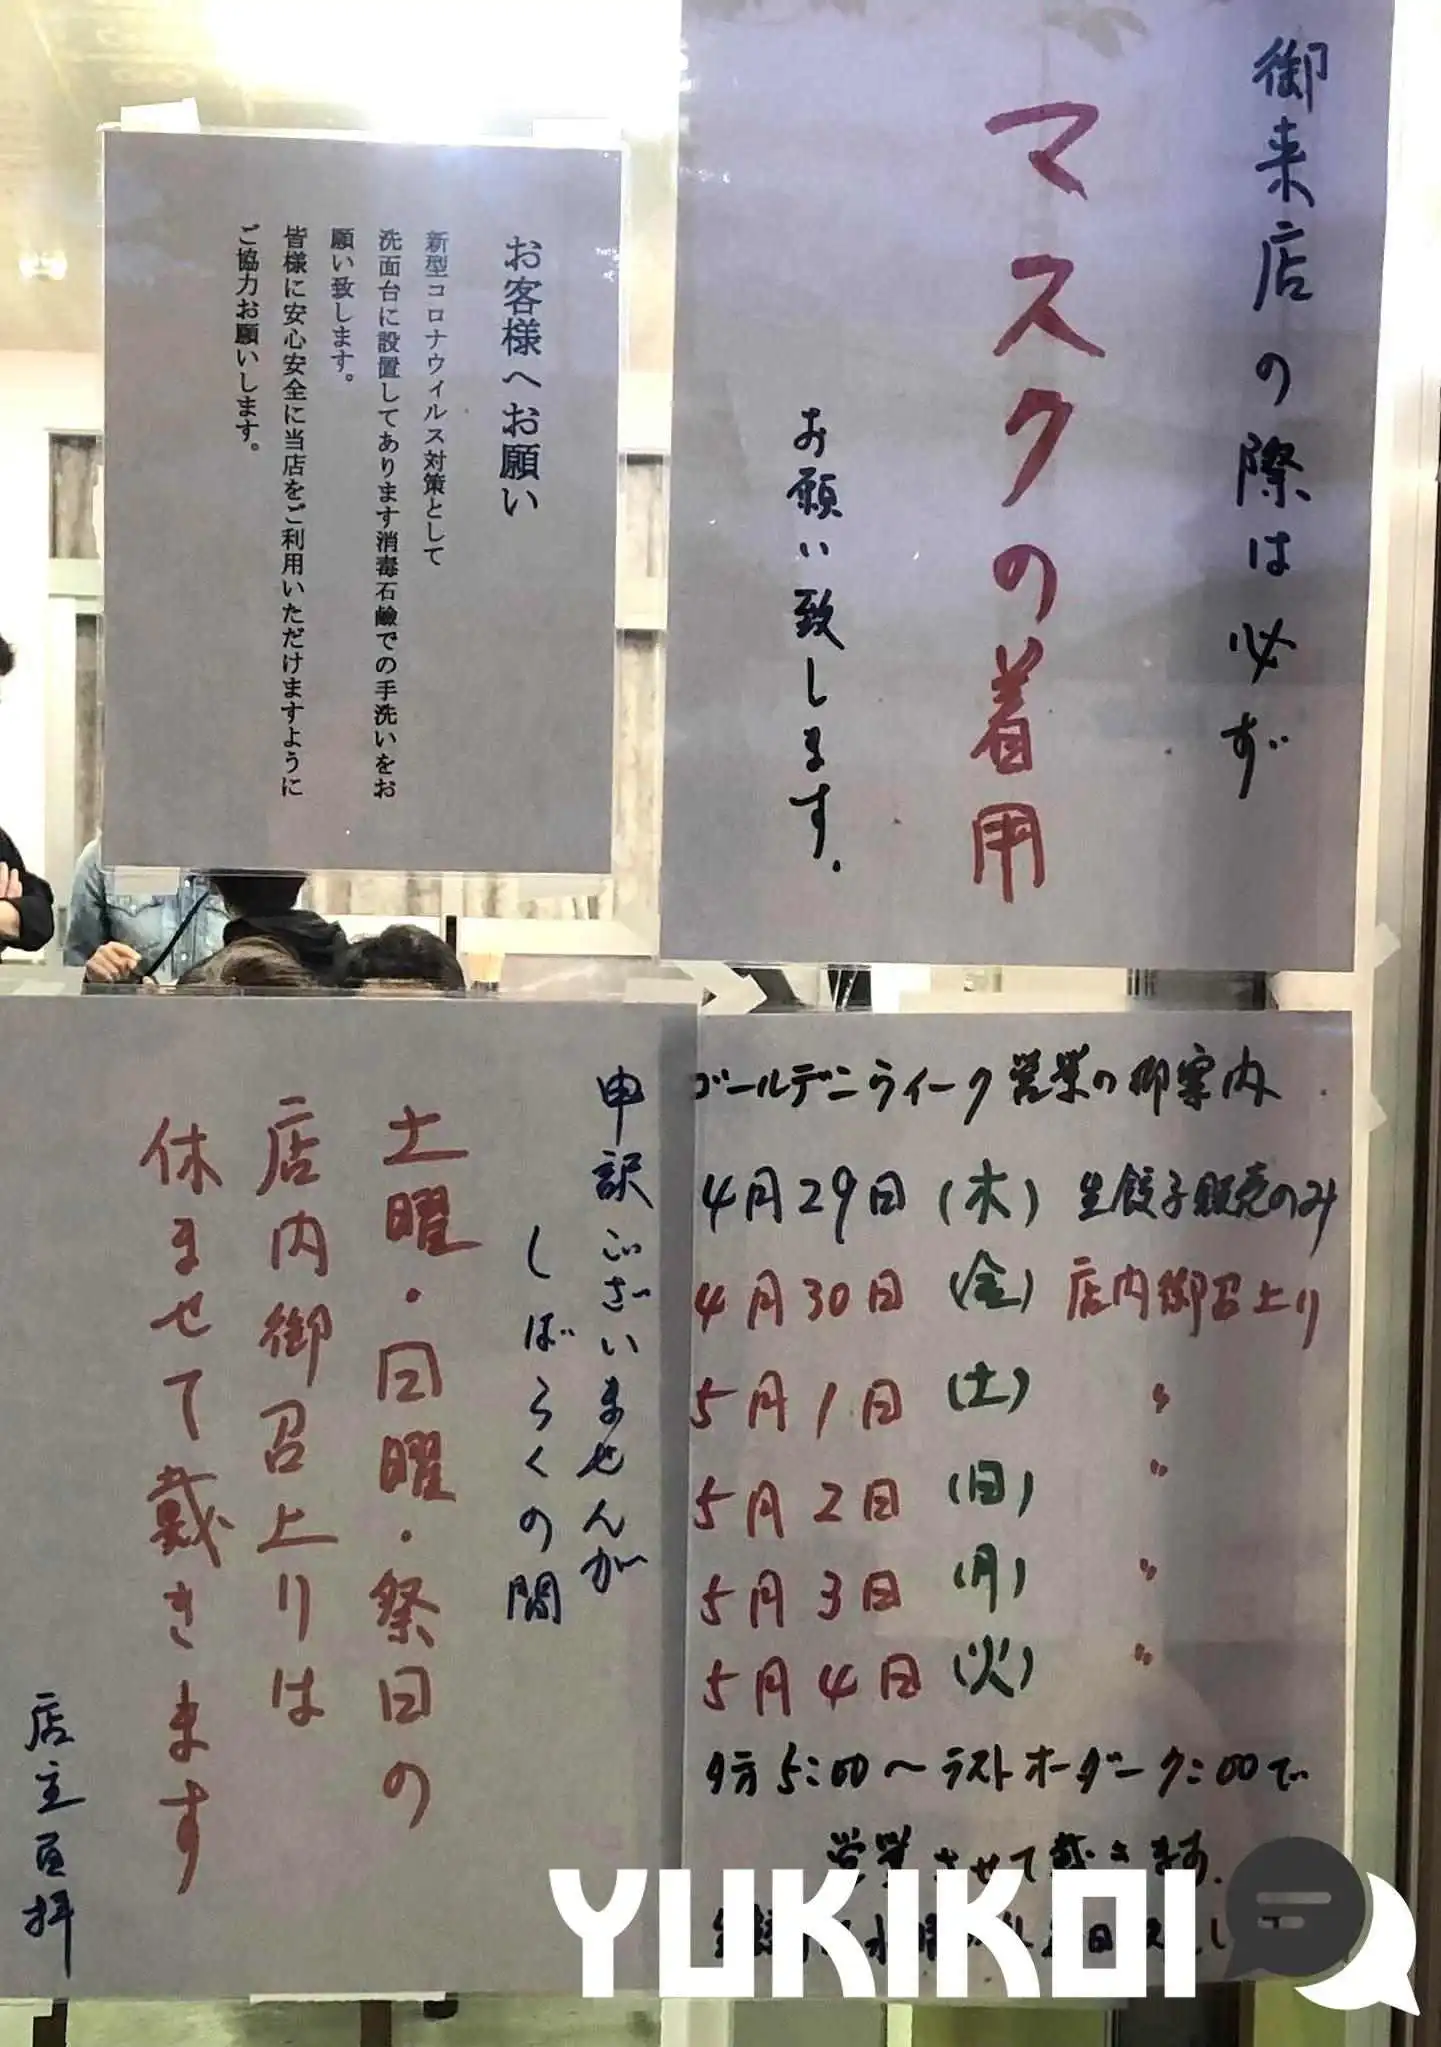 御来店の際は必ず
マスクの着用
お願い致します.
お客様へお願い
新型コロナウィルス対策として
洗面台に設置してあります消毒石鹸での手洗いをお
願い致します。
皆様に安心安全に当店をご利用いただけますように
ご協力お願いします。
申訳ございませんが
しばらくの間
土曜・日曜・祭日の
店内御召上りは
休ませて戴きます
店主
拝
ゴールデンウィーク営業の御案内
4月29日(木) 生餃子販売のみ
4月30日(金) 店内御召上り
5月1日(土) 〃
5月2日(日) 〃
5月3日(月) 〃
5月4日(火) 〃
夕方5:00〜ラストオーダー7:00で
営業させて戴きます.
YUKIKOI